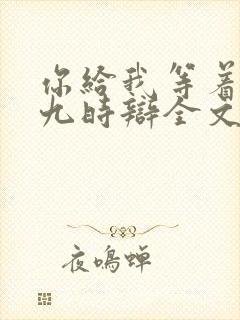 你給我等着
九時辯全文
夜鳴蝉